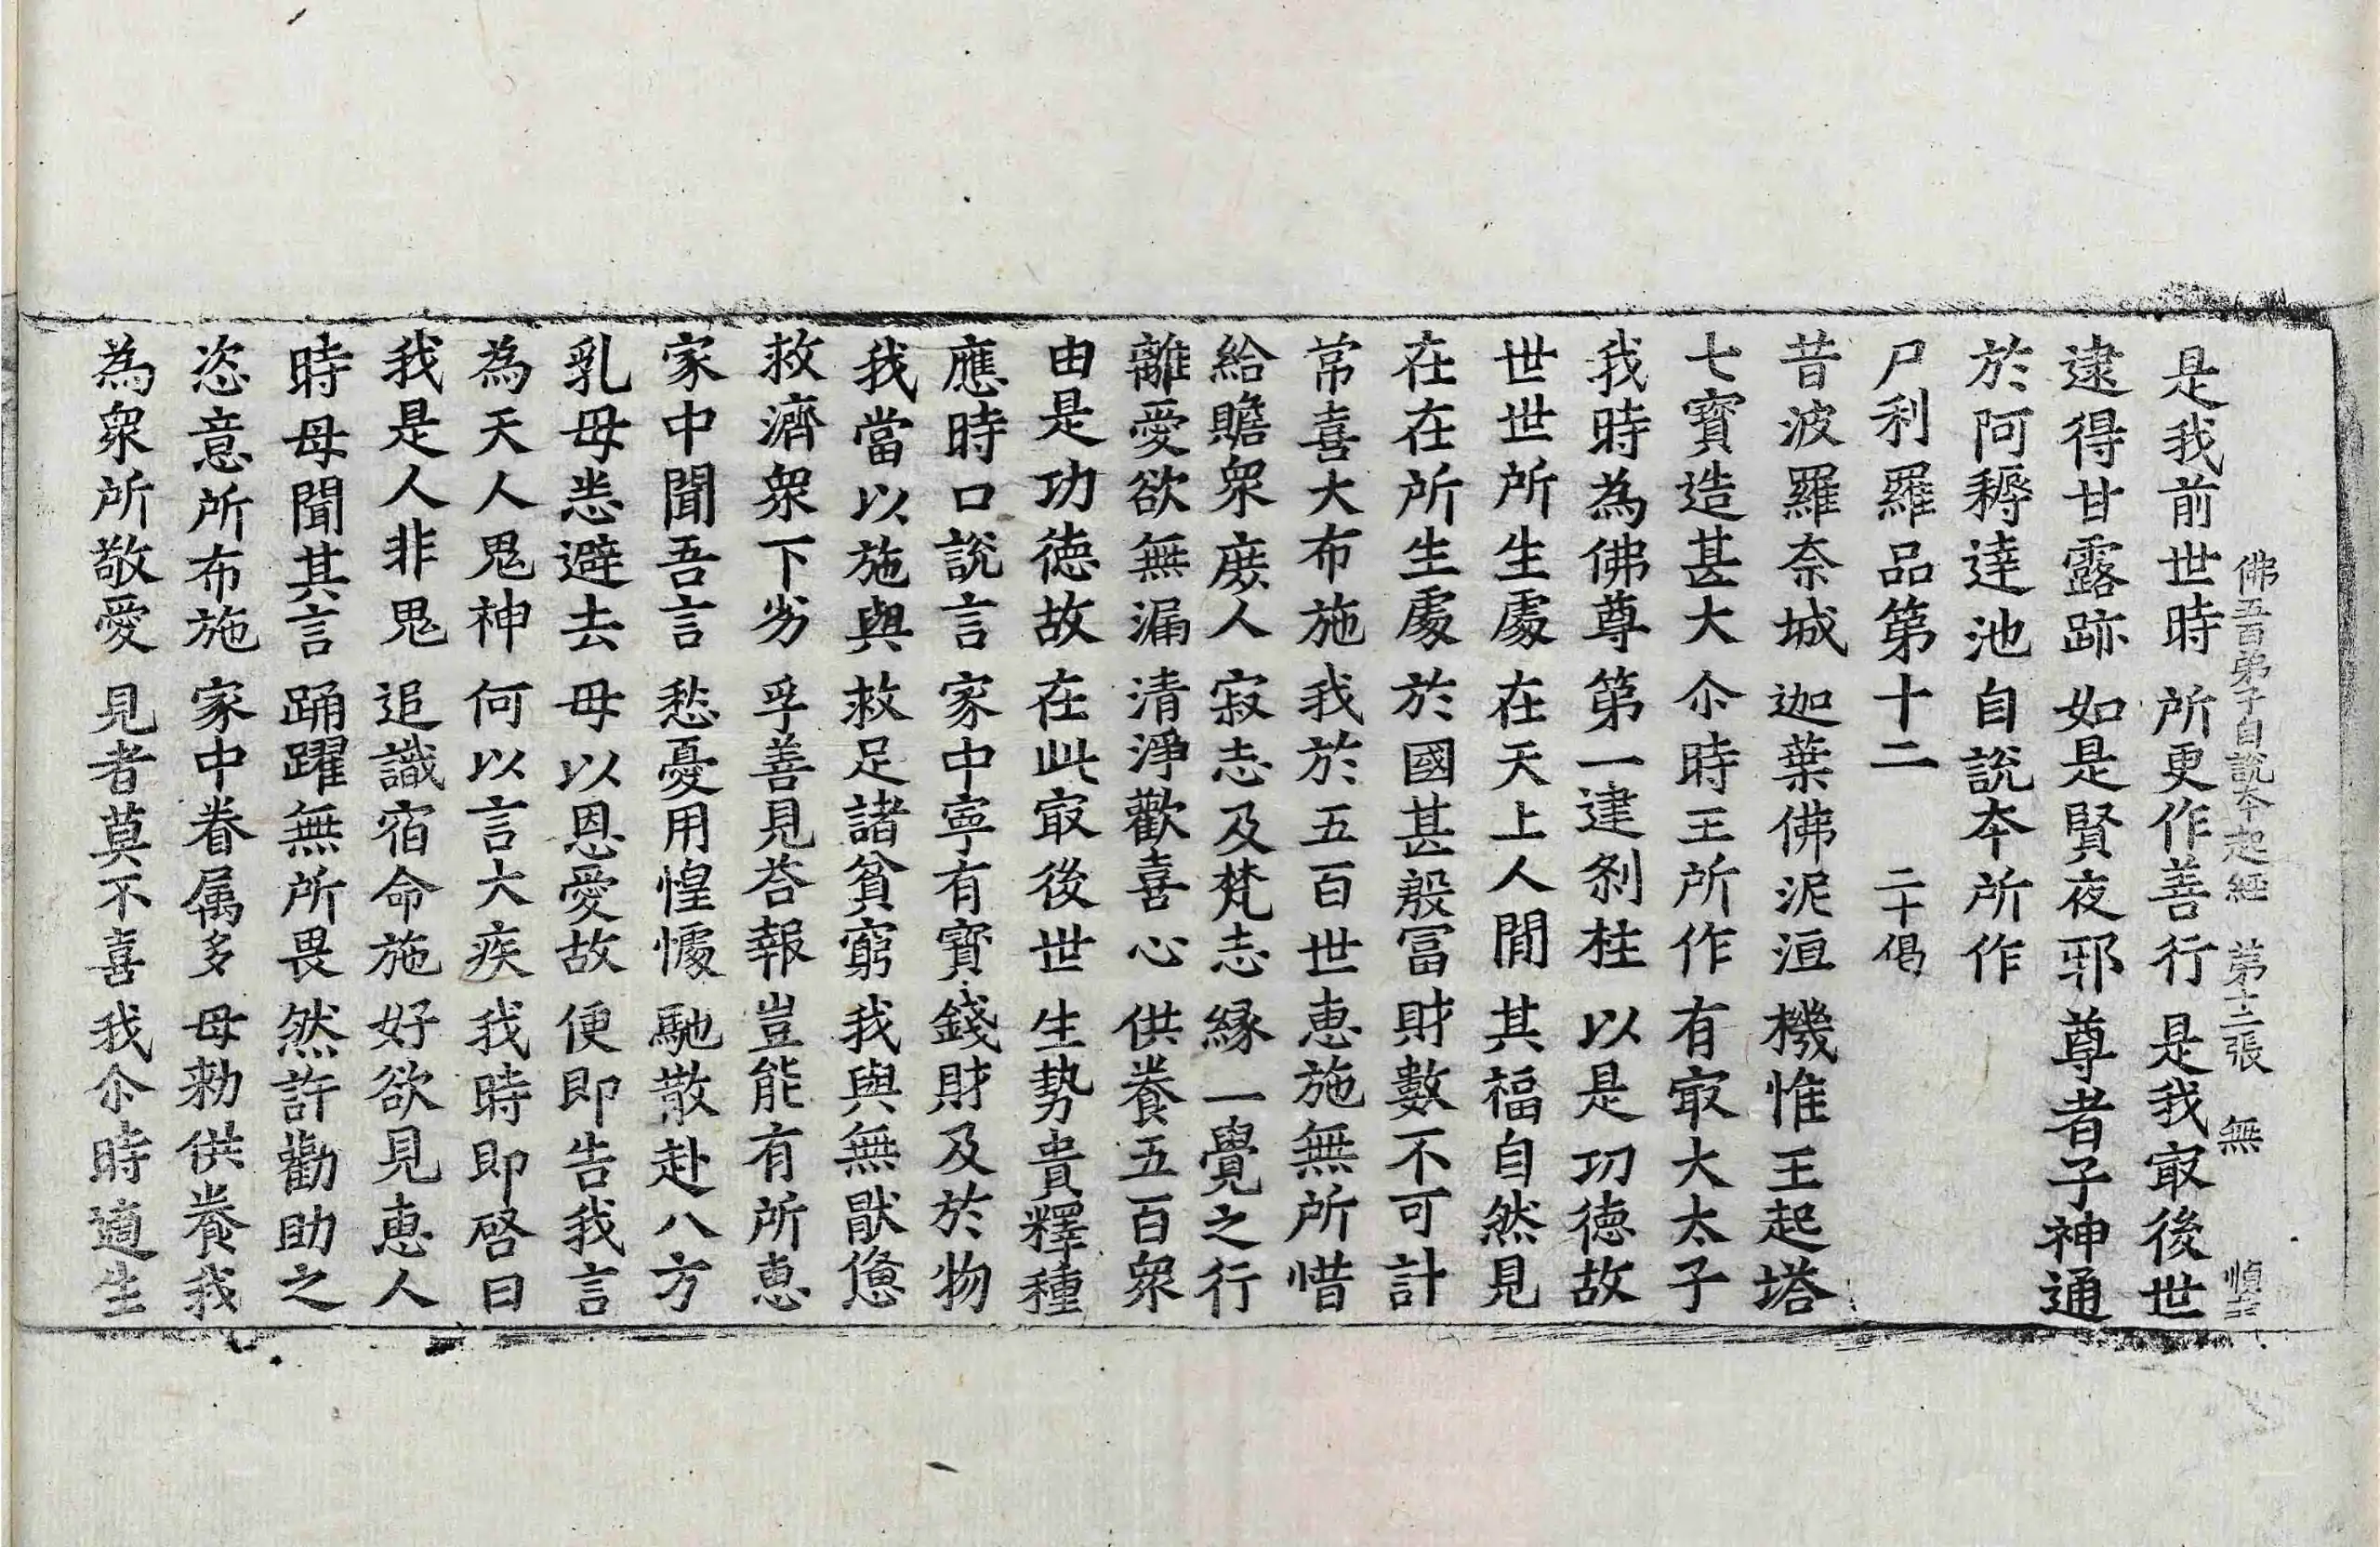 佛五百弟子自說本起經 第十二張 無
是我前世時 所更作善行 是我冣後世
逮得甘露跡 如是賢夜邪 尊者子神通
於阿耨達池 自說本所作
尸利羅品第十二 二十偈
昔波羅奈城 迦葉佛泥洹 機惟王起塔
七寶造甚大 尒時王所作 有冣大太子
我時為佛尊 第一建剎柱 以是功德故
世世所生處 在天上人間 其福自然見
在在所生處 於國甚殷冨 財數不可計
常喜大布施 我於五百世 惠施無所惜
給贍衆庻人 寂志及梵志 緣一覺之行
離愛欲無漏 清淨歡喜心 供養五百衆
由是功德故 在此冣後世 生勢貴釋種
應時口說言 家中寧有寶 錢財及於物
我當以施與 救足諸貧窮 我與無猒惓
救濟衆下劣 孚善見荅報 豈能有所惠
家中聞吾言 愁憂用惶懅 馳散赴八方
乳母悉避去 母以恩愛故 便即告我言
為天人鬼神 何以言大疾 我時即啓曰
我是人非鬼 追識宿命施 好欲見惠人
時母聞其言 踊躍無所畏 然許勸助之
恣意所布施 家中眷属多 母勑供養我
為衆所敬愛 見者莫不喜 我尒時適生